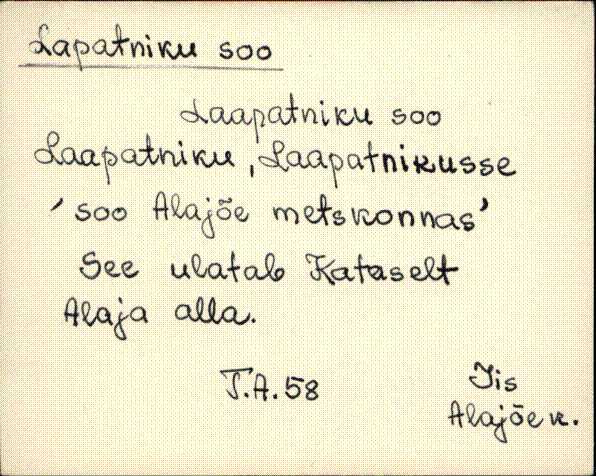 Lapatniku soo
Laapatniku soo
Laapatniku, Laapatnikusse
'soo Alajõe metskonnas'
See ulatab Kataselt
Alaja alla.
T.A.58
Iis
Alajõe k.